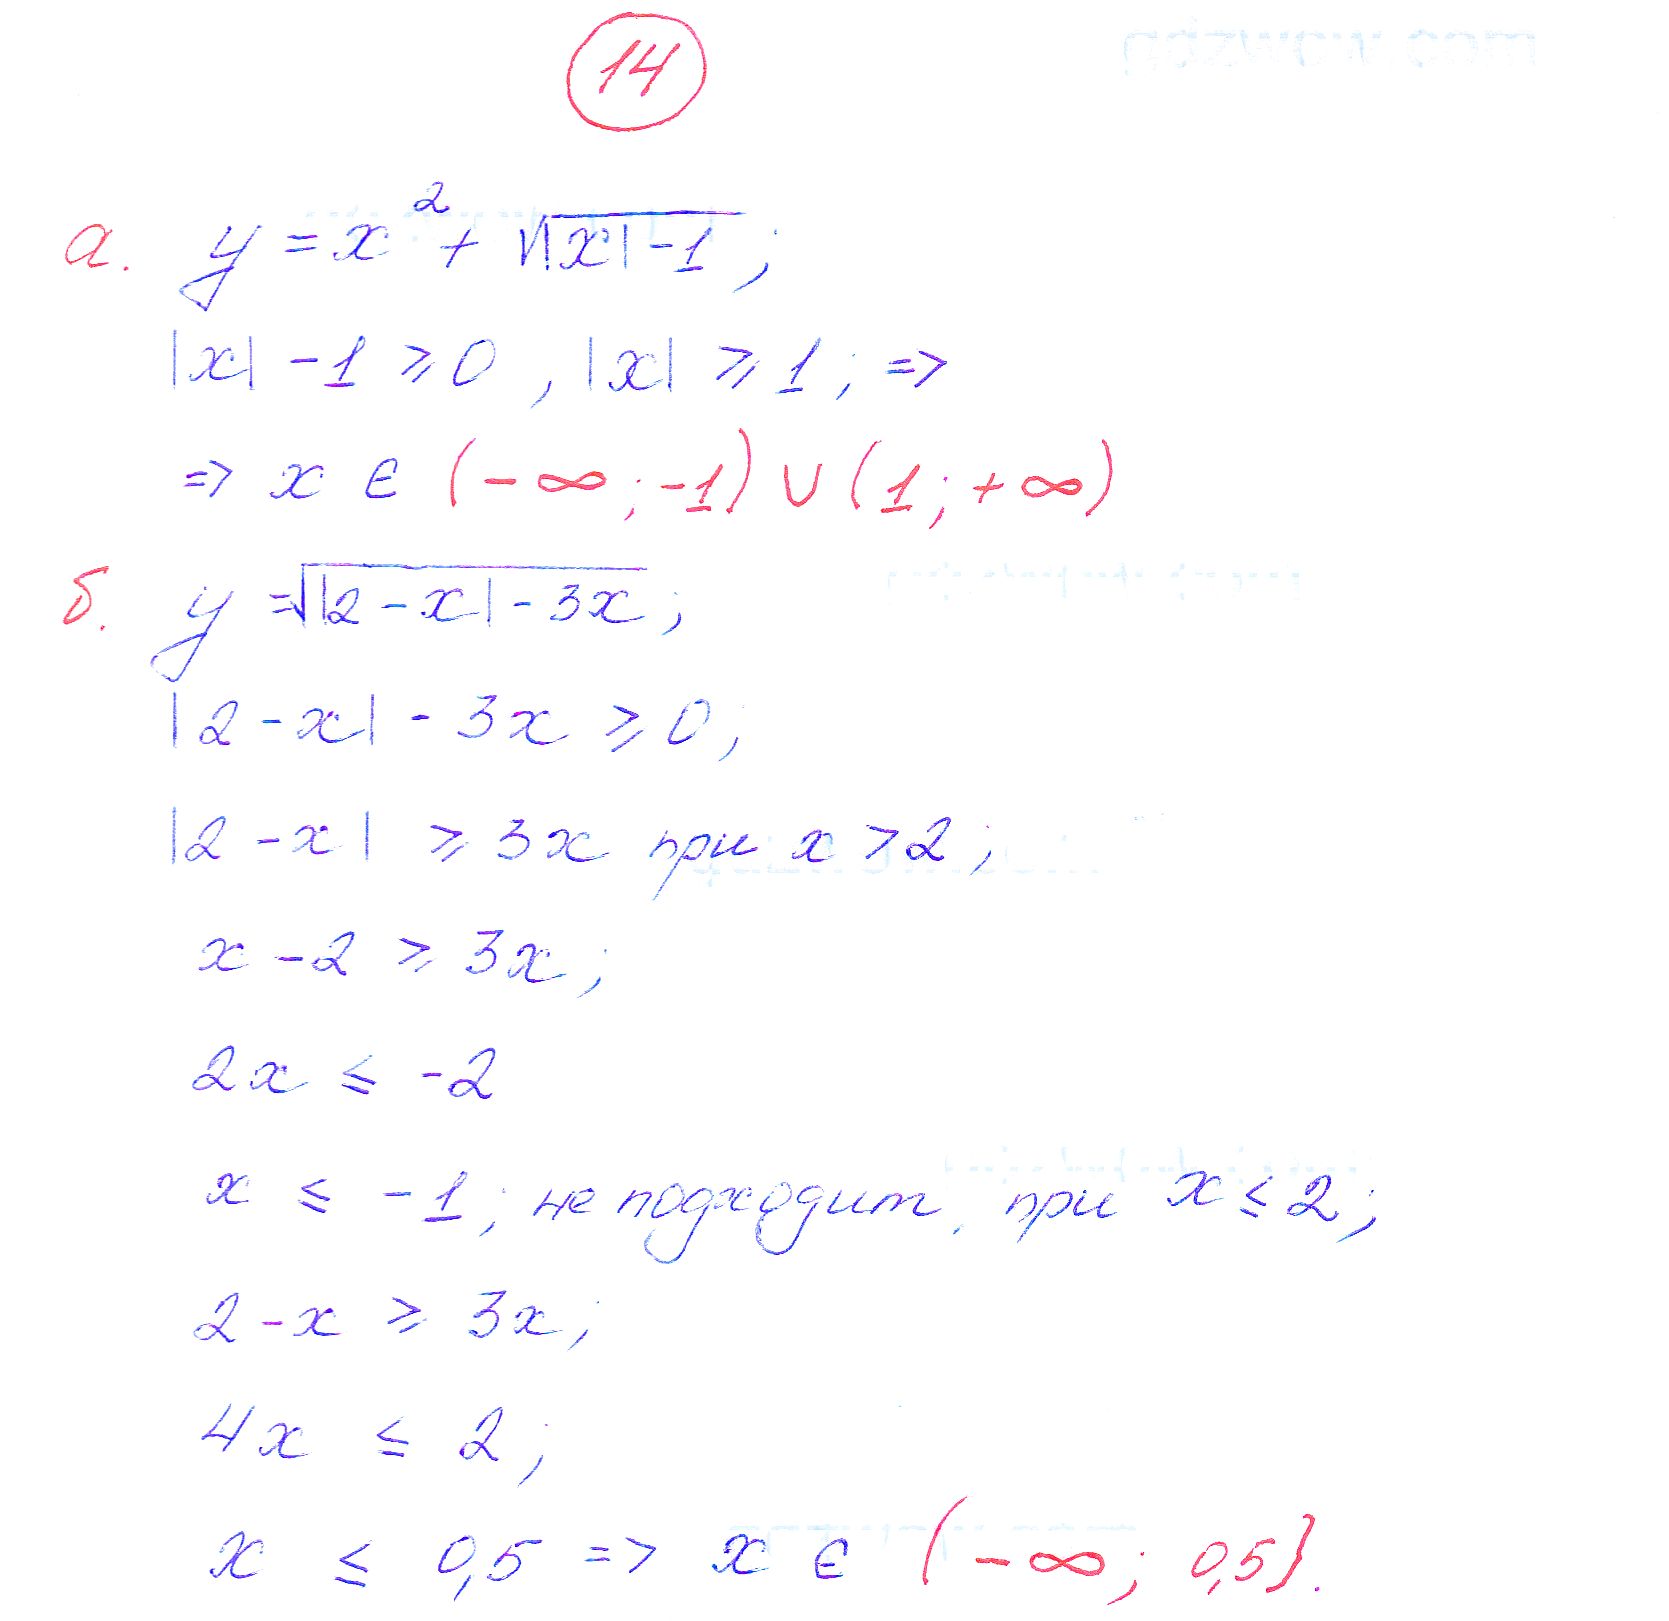 14
а. y = x² + √|x| - 1 ;
|x| - 1 ⩾ 0 , |x| ⩾ 1 ; =>
=> x ∈ (-∞; -1) ∪ (1; +∞)
б. y = √|2 - x| - 3x ;
|2 - x| - 3x ⩾ 0 ;
|2 - x| ⩾ 3x при x > 2 ;
x - 2 ⩾ 3x ;
2x ⩽ -2
x ⩽ -1 ; не подходит. при x ⩽ 2 ;
2 - x ⩾ 3x ;
4x ⩽ 2 ;
x ⩽ 0,5 => x ∈ (-∞; 0,5}.